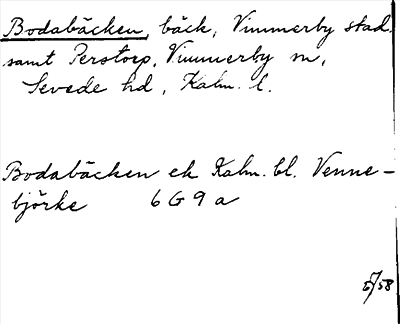 Bodabäcken, bäck, Vimmerby stad
samt Perstorp, Vimmerby sn,
Sevede hd, Kalm. l.
Bodabäcken ek Kalm. bl. Venne-
björke 6 G 9 a